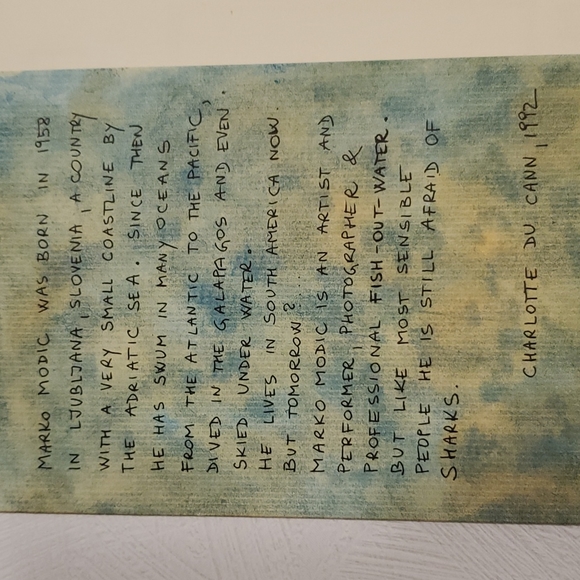 MARKO MODIC WAS BORN IN 1958
IN LJUBLJANA, SLOVENIA, A COUNTRY
WITH A VERY SMALL COASTLINE BY
THE ADRIATIC SEA. SINCE THEN
HE HAS SWUM IN MANY OCEANS
FROM THE ATLANTIC TO THE PACIFIC,
DIVED IN THE GALAPAGOS AND EVEN.
SKIED UNDER WATER.
HE LIVES IN SOUTH AMERICA NOW.
BUT TOMORROW?....
MARKO MODIC IS AN ARTIST AND
PERFORMER, PHOTOGRAPHER &
PROFESSIONAL FISH-OUT-WATER.
BUT LIKE MOST SENSIBLE
PEOPLE HE IS STILL AFRAID OF
SHARKS.
CHARLOTTE DU CANN, 1992